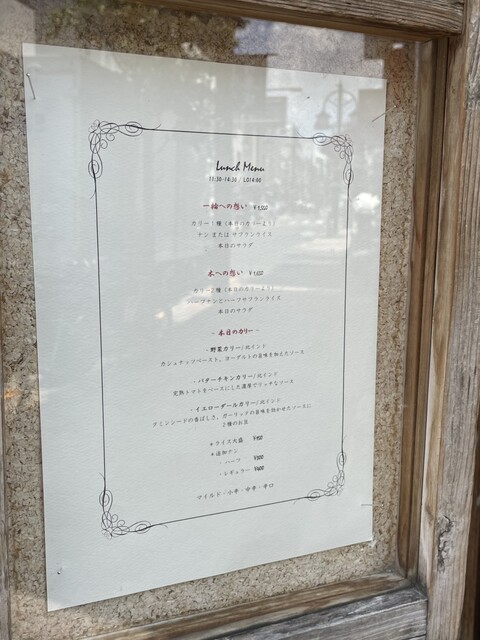 Lunch Menu
11:30-14:30 / LO14:00
一輪への想い
カリー1種(本日のカリーより)
ナン または サフランライス
本日のサラダ
木への想い
カリー2種(本日のカリーより)
ハーフナンとハーフサフランライス
本日のサラダ
-本日のカリー-
・野菜カリー/北インド
カシュナッツペースト、ヨーグルトの旨味を加えたソース
・バターチキンカリー/北インド
完熟トマトをベースにした濃厚でリッチなソース
・イエローダールカリー/北インド
クミンシードの香ばしさ、ガーリックの旨味を効かせたソースに
2種のお豆
*ライス大盛
*追加ナン
・ハーフ ¥300
・レギュラー ¥600
マイルド・小辛・中辛・辛口